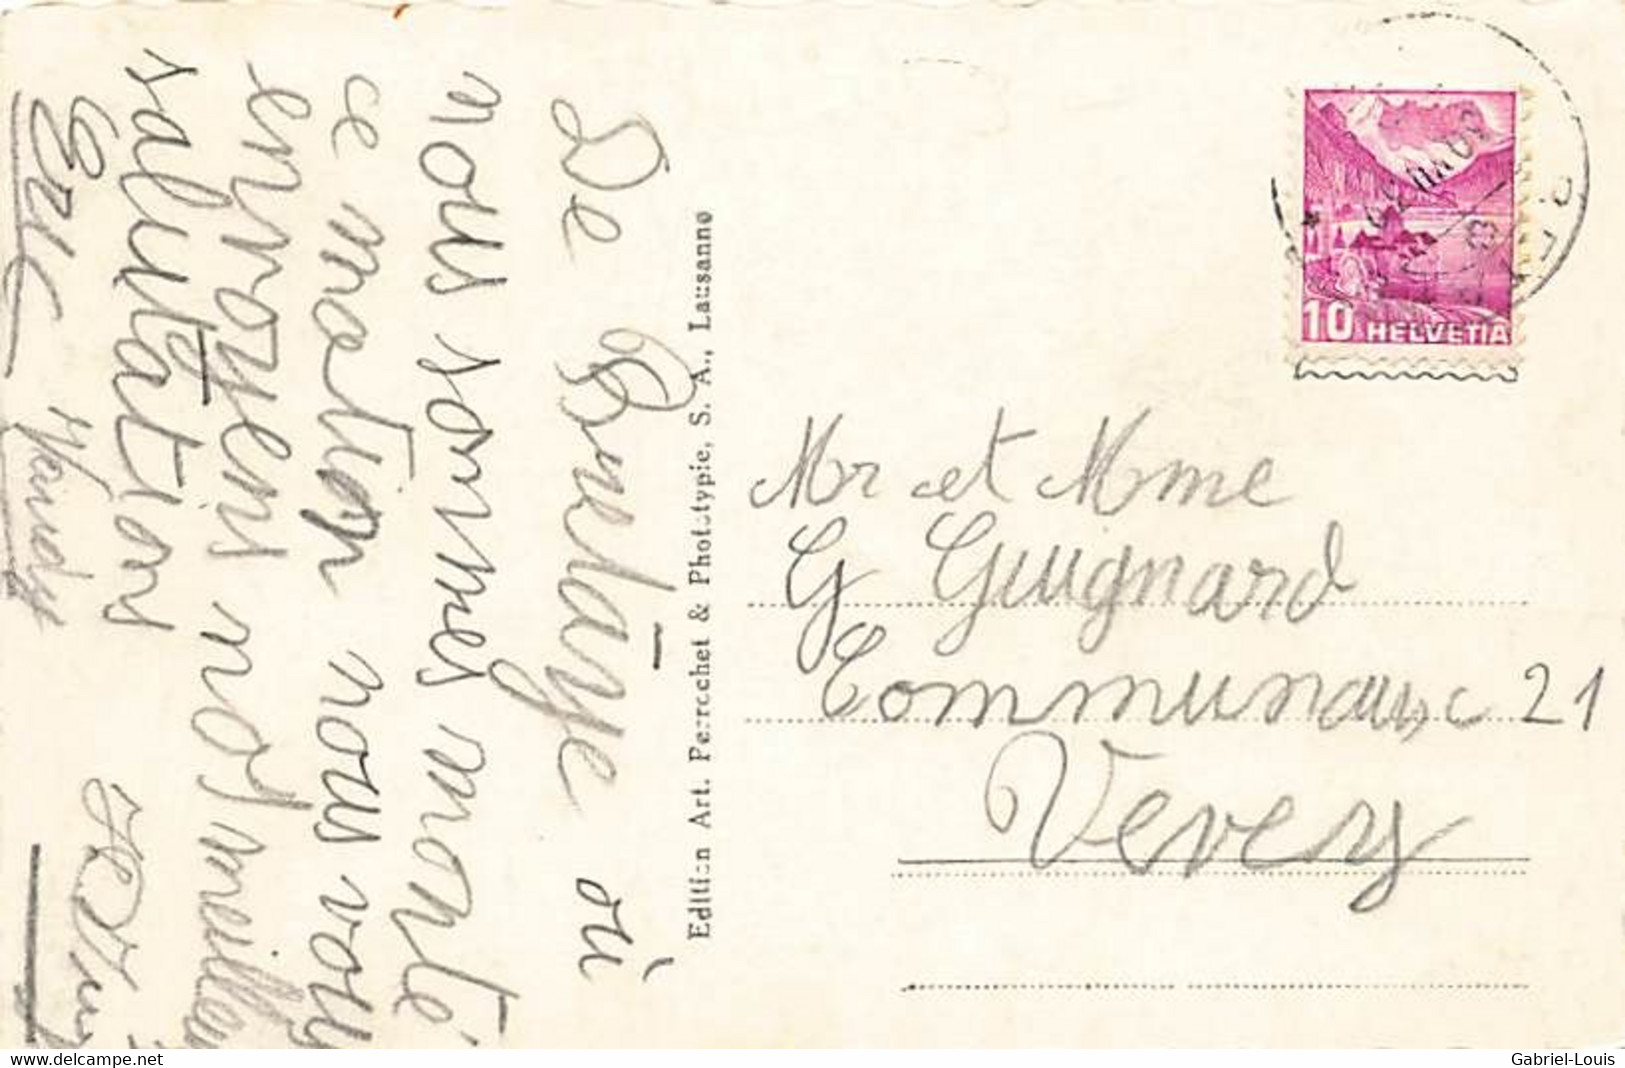 De Bretaye où
nous sommes monté
ce matin nous vous
envoyens nos meilleu
salutatios
Eric
Edition Art. Perrochet & Phototypie, S. A., Lausanne
10 HELVETIA
Mr et Mme
G Guignard
Communaux 21
Vevey
www.delcampe.net
Gabriel-Louis